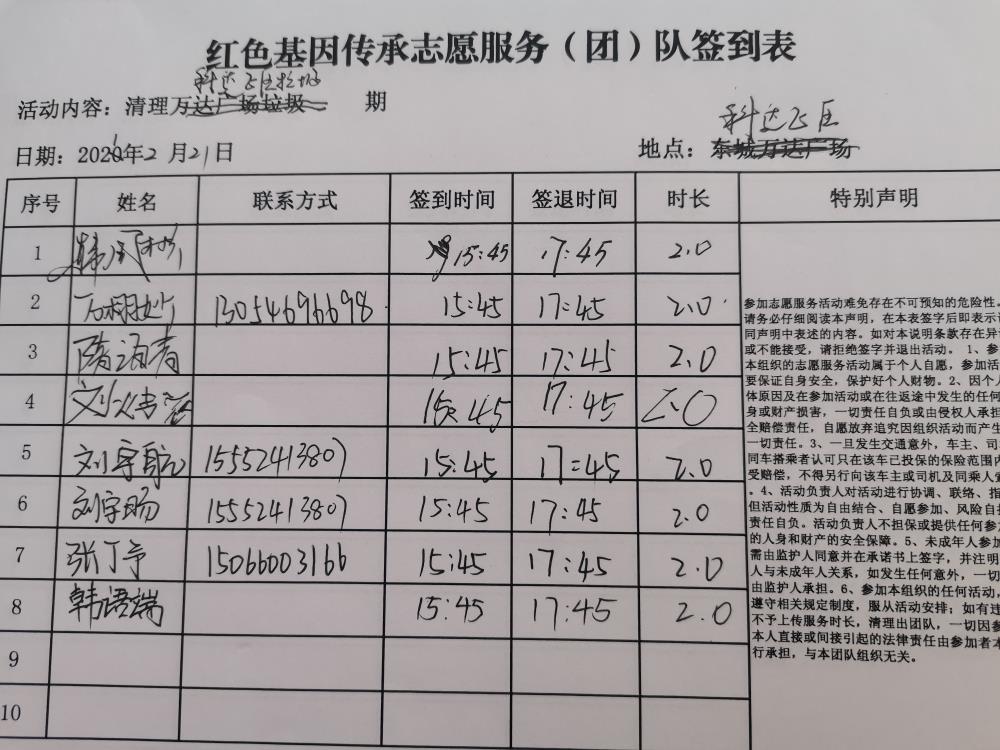 红色基因传承志愿服务（团）队签到表
科达飞臣垃圾
活动内容：清理万达广场垃圾 期
科达飞臣
日期：2026年2月21日 地点：东城万达广场
序号 姓名 联系方式 签到时间 签退时间 时长 特别声明
1 15:45 17:45 2.0
2 13054696698 15:45 17:45 2.0
3 隋涵青 15:45 17:45 2.0
4 15:45 17:45 2.0
5 刘宇航 15552413807 15:45 17:45 2.0
6 刘宇旸 15552413807 15:45 17:45 2.0
7 张丁予 15066003166 15:45 17:45 2.0
8 韩语端 15:45 17:45 2.0
9
10
参加志愿服务活动难免存在不可预知的危险性。
请务必仔细阅读本声明，在本表签字后即表示认
同声明中表述的内容。如对本说明条款存在异
或不能接受，请拒绝签字并退出活动。 1、参
本组织的志愿服务活动属于个人自愿，参加活
要保证自身安全，保护好个人财物。2、因个人
体原因及在参加活动或在往返途中发生的任何
身或财产损害，一切责任自负或由侵权人承担
全赔偿责任，自愿放弃追究因组织活动而产生
一切责任。3、一旦发生交通意外，车主、司
同车搭乘者认可只在该车已投保的保险范围内
受赔偿，不得另行向该车主或司机及同乘人索
。4、活动负责人对活动进行协调、联络、指
但活动性质为自由结合、自愿参加、风险自担
责任自负。活动负责人不担保或提供任何参
的人身和财产的安全保障。5、未成年人参加
需由监护人同意并在承诺书上签字，并注明
人与未成年人关系，如发生任何意外，一切
由监护人承担。6、参加本组织的任何活动，
遵守相关规定制度，服从活动安排；如有违
不予上传服务时长，清理出团队，一切因参
本人直接或间接引起的法律责任由参加者本
行承担，与本团队组织无关。